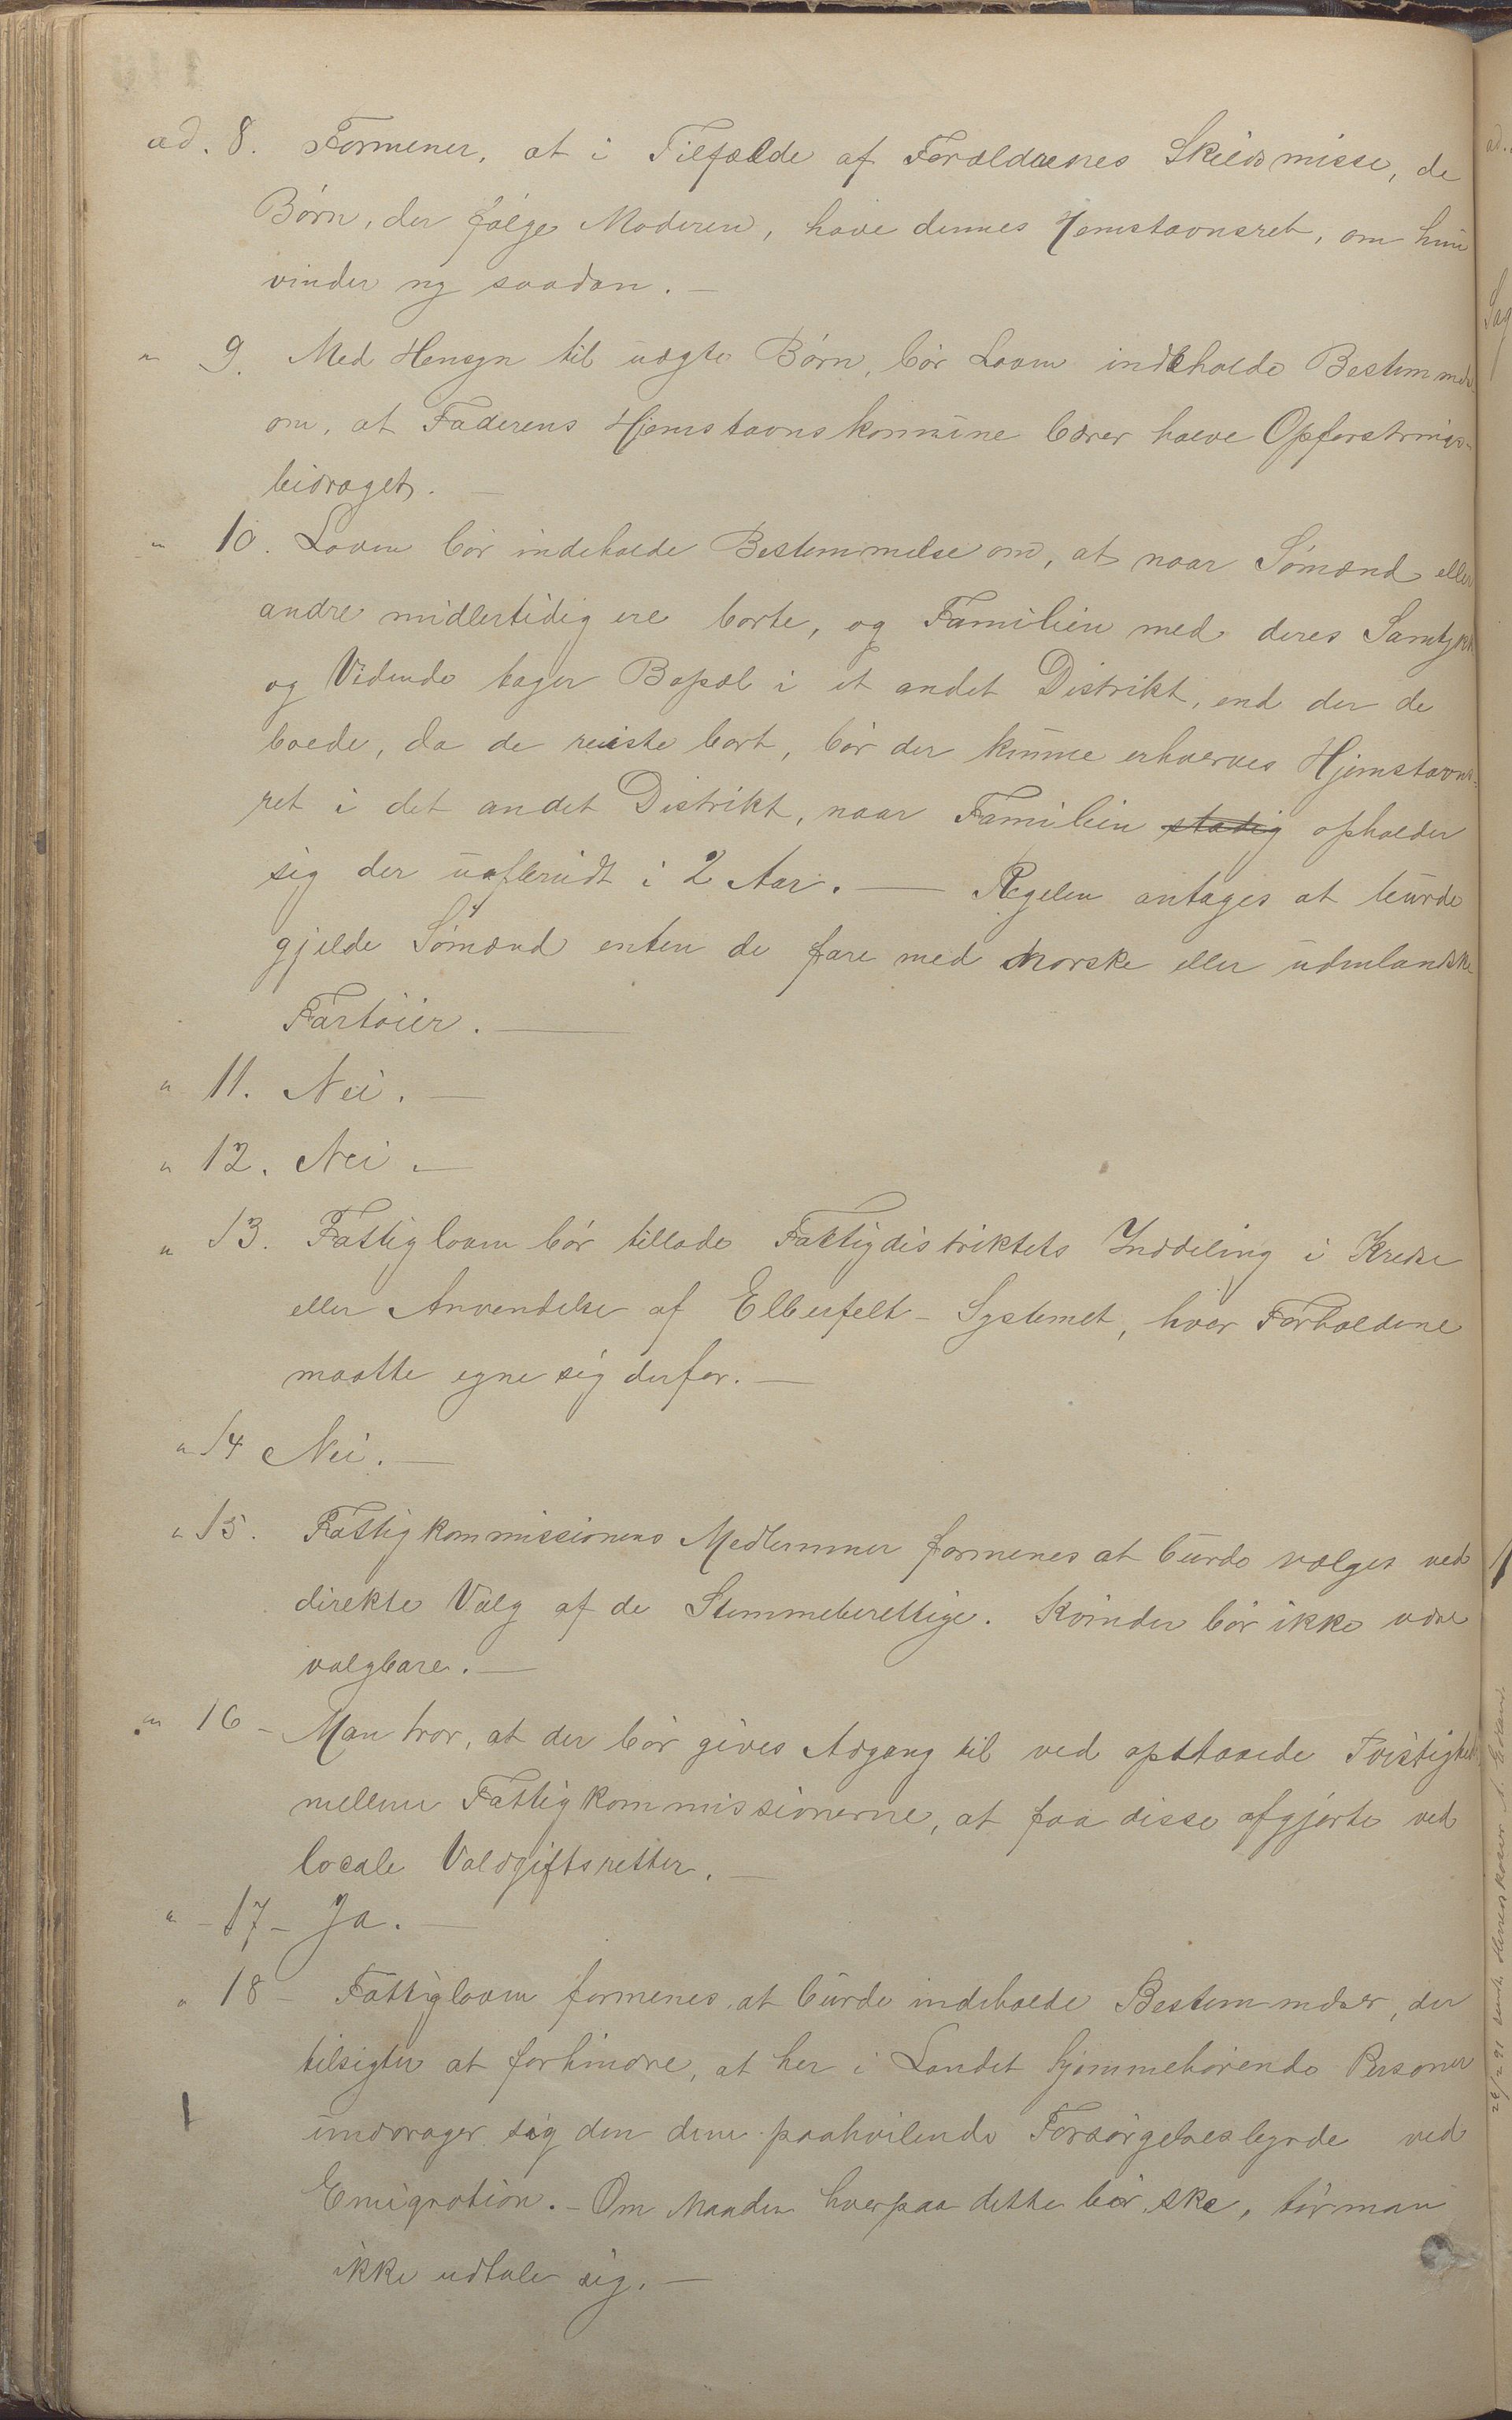 ad. 8. Formener, at i Tilfælde af Forældrenes Skilsmisse, de
Børn, der følge Moderen, have dennes Hjemstavnsret, om hun
vinder ny saadan. —
" 9. Med Hensyn til uægte Børn, bør Loven indeholde Bestemmelse
om, at Faderens Hjemstavnskommune bærer halve Opfostrings-
bidraget. —
" 10. Loven bør indeholde Bestemmelse om, at naar Sømænd eller
andre midlertidig ere borte, og Familien med deres Samtykke
og Vidende tager Bopæl i et andet Distrikt, end der de
boede, da de reiste bort, bør der kunne erhverves Hjemstavns-
ret i det andet Distrikt, naar Familien stadig opholder
sig der uafbrudt i 2 Aar. — Regelen antages at burde
gjelde Sømænd enten de fare med norske eller udenlandske
Fartøier. —
" 11. Nei. —
" 12. Nei. —
" 13. Fattigloven bør tillade Fattigdistriktets Inddeling i Kredse
eller Anvendelse af Elberfelt-Systemet, hvor Forholdene
maatte egne sig derfor. —
" 14 Nei. —
" 15. Fattigkommissionens Medlemmer formenes at burde vælges ved
direkte Valg af de Stemmeberettige. Kvinder bør ikke være
valgbare. —
" 16 - Man tror, at der bør gives Adgang til ved opstaaede Tvistigheder
mellem Fattigkommissionerne, at faa disse afgjorte ved
locale Voldgiftsretter. —
" - 17 - Ja. —
" 18 - Fattigloven formenes at burde indeholde Bestemmelser, der
tilsigter at forhindre, at her i Landet hjemmehørende Personer
unddrager sig den dem paahvilende Forsørgelsesbyrde ved
Emigration. - Om Maaden hvorpaa dette bør ske, tør man
ikke udtale sig. —